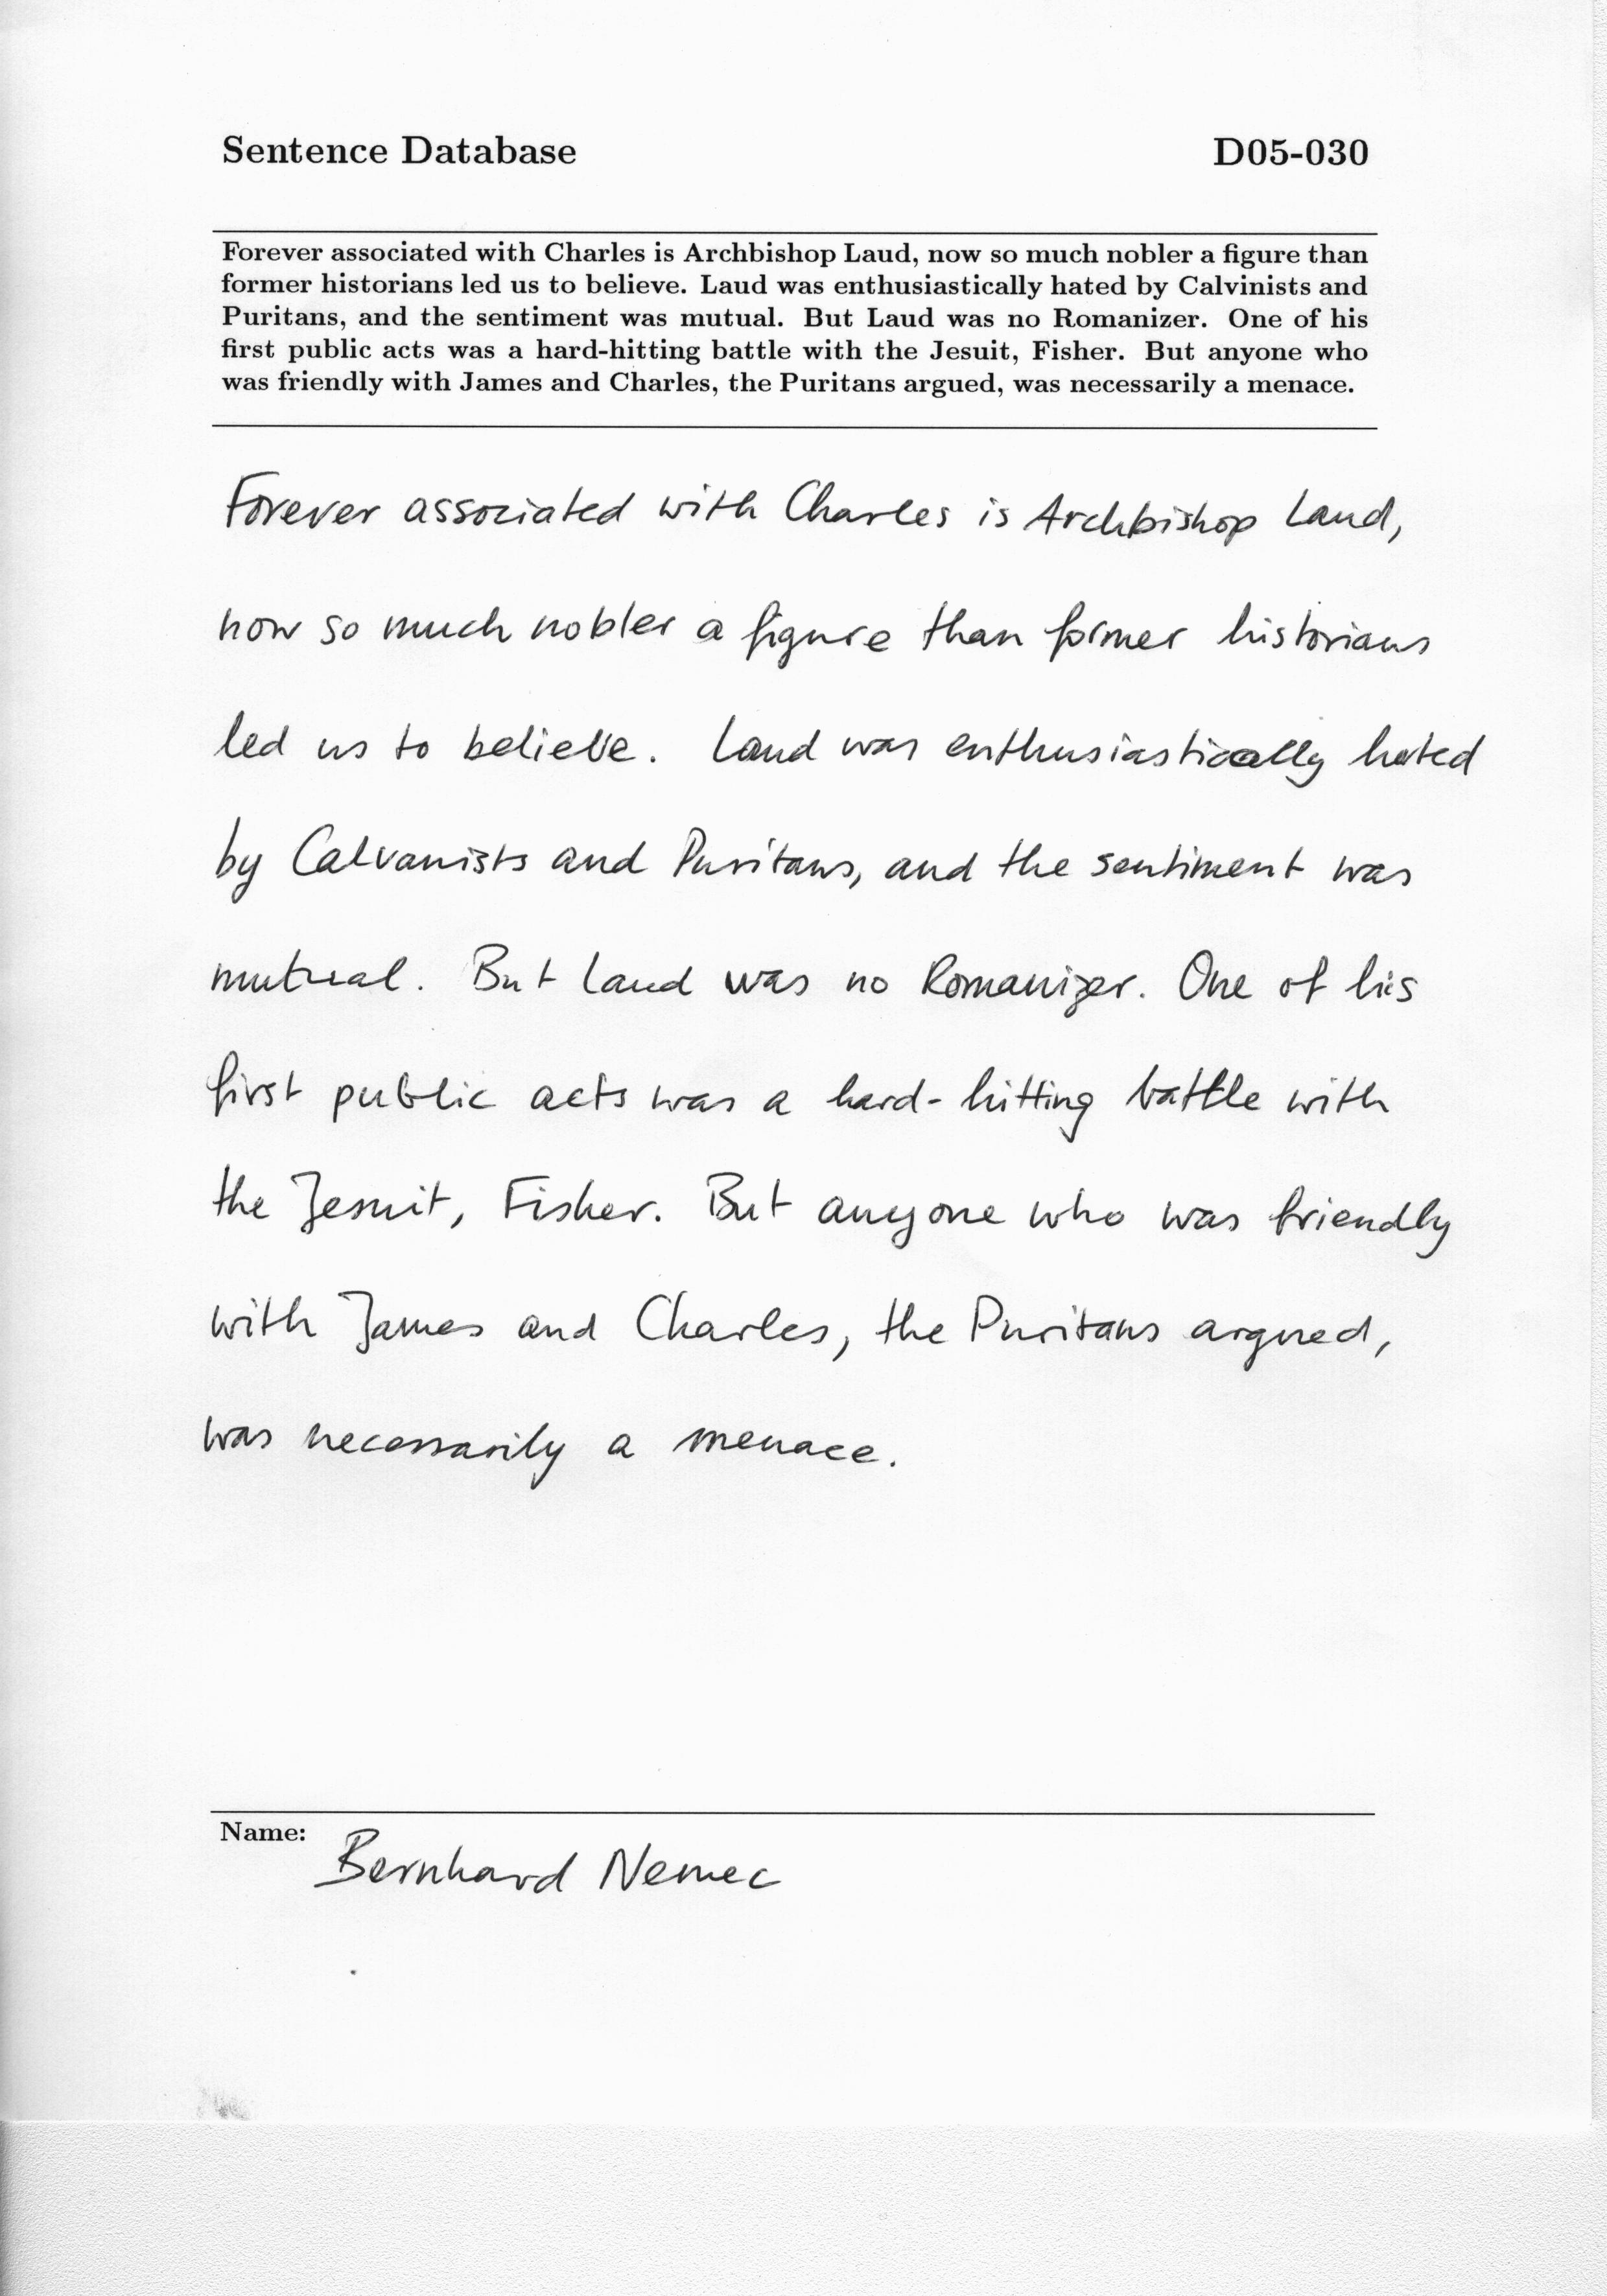 Sentence Database D05-030
Forever associated with Charles is Archbishop Laud, now so much nobler a figure than
former historians led us to believe. Laud was enthusiastically hated by Calvinists and
Puritans, and the sentiment was mutual. But Laud was no Romanizer. One of his
first public acts was a hard-hitting battle with the Jesuit, Fisher. But anyone who
was friendly with James and Charles, the Puritans argued, was necessarily a menace.
Forever associated with Charles is Archbishop Laud,
now so much nobler a figure than former historians
led us to believe. Laud was enthusiastically hated
by Calvanists and Puritans, and the sentiment was
mutual. But Laud was no Romanizer. One of his
first public acts was a hard-hitting battle with
the Jesuit, Fisher. But anyone who was friendly
with James and Charles, the Puritans argued,
was necessarily a menace.
Name: Bernhard Nemec